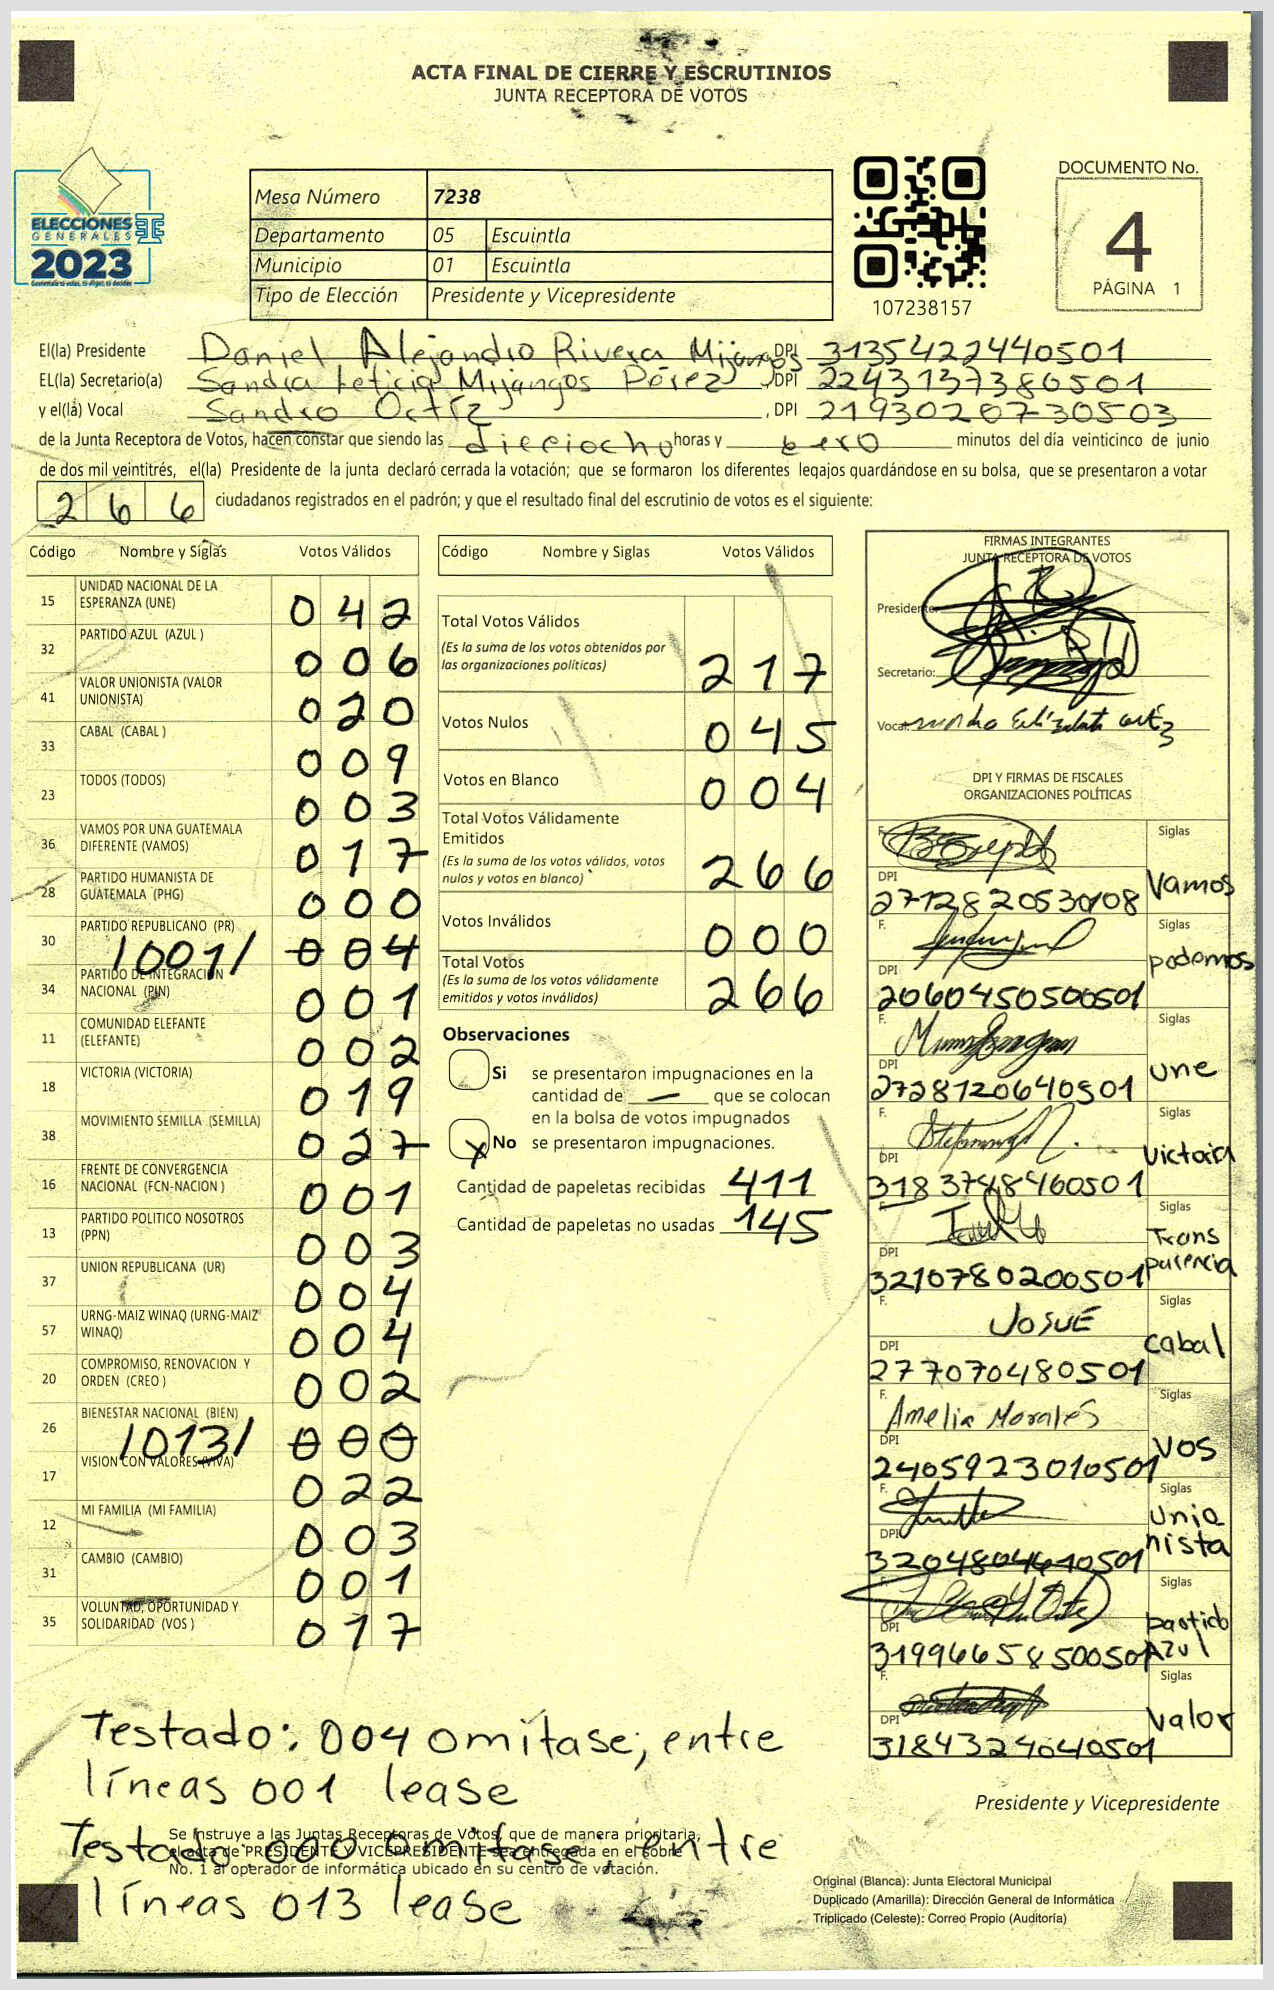 ACTA FINAL DE CIERRE Y ESCRUTINIOS
JUNTA RECEPTORA DE VOTOS
ELECCIONES
GENERALES
2023
Mesa Número 7238
Departamento 05 Escuintla
Municipio 01 Escuintla
Tipo de Elección Presidente y Vicepresidente
107238157
DOCUMENTO No.
4
PÁGINA 1
El(la) Presidente Daniel Alejandro Rivera Mijangos DPI 3135422440501
EL(la) Secretario(a) Sandra Leticia Mijangos Pérez , DPI 2243137380501
y el(la) Vocal Sandro Ortiz , DPI 2193020730503
de la Junta Receptora de Votos, hacen constar que siendo las dieciocho horas y cero minutos del día veinticinco de junio
de dos mil veintitrés, el(la) Presidente de la junta declaró cerrada la votación; que se formaron los diferentes legajos guardándose en su bolsa, que se presentaron a votar
266 ciudadanos registrados en el padrón; y que el resultado final del escrutinio de votos es el siguiente:
Código Nombre y Siglas Votos Válidos
15 UNIDAD NACIONAL DE LA ESPERANZA (UNE) 042
32 PARTIDO AZUL (AZUL ) 006
41 VALOR UNIONISTA (VALOR UNIONISTA) 020
33 CABAL (CABAL ) 009
23 TODOS (TODOS) 003
36 VAMOS POR UNA GUATEMALA DIFERENTE (VAMOS) 017
28 PARTIDO HUMANISTA DE GUATEMALA (PHG) 000
30 PARTIDO REPUBLICANO (PR) /001/ 004
34 PARTIDO DE INTEGRACION NACIONAL (PIN) 001
11 COMUNIDAD ELEFANTE (ELEFANTE) 002
18 VICTORIA (VICTORIA) 019
38 MOVIMIENTO SEMILLA (SEMILLA) 027
16 FRENTE DE CONVERGENCIA NACIONAL (FCN-NACION ) 001
13 PARTIDO POLITICO NOSOTROS (PPN) 003
37 UNION REPUBLICANA (UR) 004
57 URNG-MAIZ WINAQ (URNG-MAIZ WINAQ) 004
20 COMPROMISO, RENOVACION Y ORDEN (CREO ) 002
26 BIENESTAR NACIONAL (BIEN) /013/ 000
17 VISION CON VALORES (VIVA) 022
12 MI FAMILIA (MI FAMILIA) 003
31 CAMBIO (CAMBIO) 001
35 VOLUNTAD, OPORTUNIDAD Y SOLIDARIDAD (VOS ) 017
Código Nombre y Siglas Votos Válidos
Total Votos Válidos
(Es la suma de los votos obtenidos por
las organizaciones políticas) 217
Votos Nulos 045
Votos en Blanco 004
Total Votos Válidamente
Emitidos
(Es la suma de los votos válidos, votos
nulos y votos en blanco) 266
Votos Inválidos 000
Total Votos
(Es la suma de los votos válidamente
emitidos y votos inválidos) 266
Observaciones
Si se presentaron impugnaciones en la
cantidad de — que se colocan
en la bolsa de votos impugnados
X No se presentaron impugnaciones.
Cantidad de papeletas recibidas 411
Cantidad de papeletas no usadas 145
FIRMAS INTEGRANTES
JUNTA RECEPTORA DE VOTOS
Presidente:
Secretario:
Vocal:
DPI Y FIRMAS DE FISCALES
ORGANIZACIONES POLÍTICAS
F. Siglas
DPI 2712820530108 Vamos
F. Siglas
DPI 2060450500501 podemos
F. Siglas
DPI 2728120640501 une
F. Siglas
DPI 3183748460501 Victoria
F. Siglas
DPI 3210780200501 Transparencia
F. JOSUÉ Siglas
DPI 277070480501 cabal
F. Amelia Morales Siglas
DPI 2405923010501 VOS
F. Siglas
DPI 3204804610501 Unionista
F. Siglas
DPI 3199665850050 partido Azul
F. Siglas
DPI 3184324040501 Valor
Presidente y Vicepresidente
Testado: 004 omitase; entre
líneas 001 lease
Se instruye a las Juntas Receptoras de Votos, que de manera prioritaria,
el acta de PRESIDENTE Y VICEPRESIDENTE sea entregada en el sobre
No. 1 al operador de informática ubicado en su centro de votación.
Testado: 000 omitase; entre
líneas 013 lease
Original (Blanca): Junta Electoral Municipal
Duplicado (Amarilla): Dirección General de Informática
Triplicado (Celeste): Correo Propio (Auditoría)